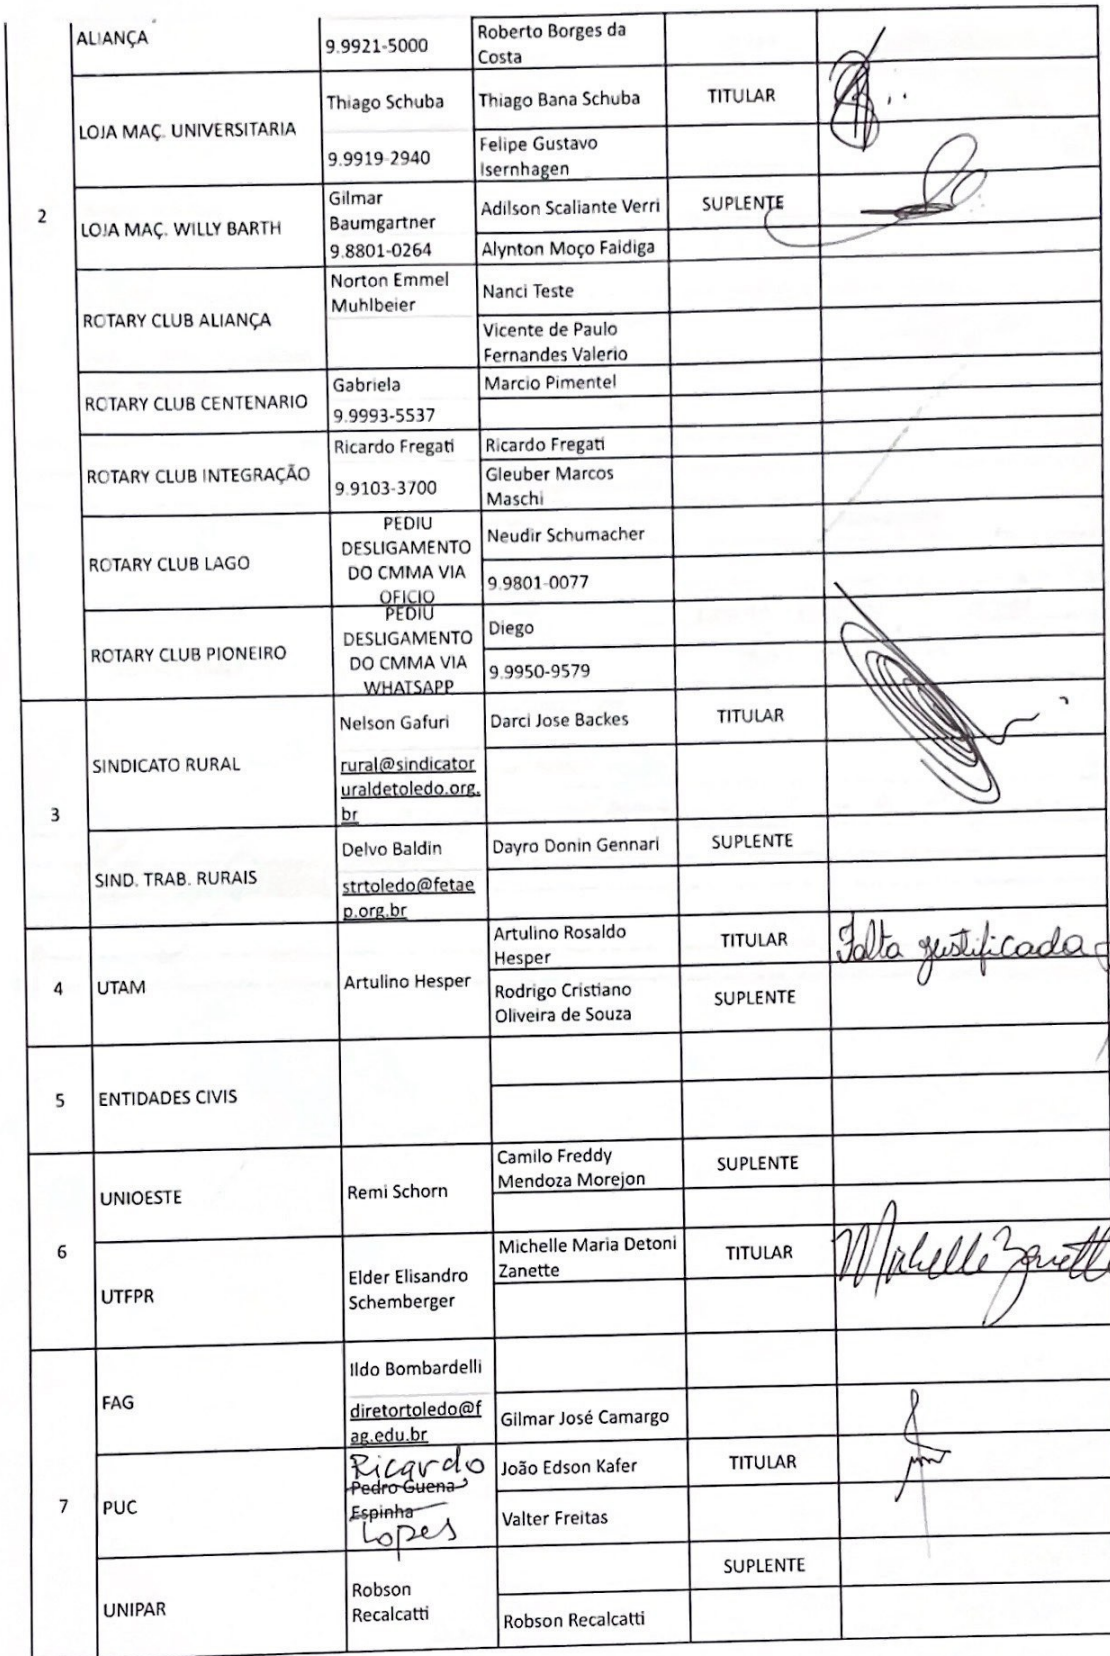 ALIANÇA
9.9921-5000
Roberto Borges da
Costa
2
LOJA MAÇ. UNIVERSITARIA
Thiago Schuba
9.9919-2940
Thiago Bana Schuba
TITULAR
Felipe Gustavo
Isernhagen
LOJA MAÇ. WILLY BARTH
Gilmar
Baumgartner
9.8801-0264
Adilson Scaliante Verri
SUPLENTE
Alynton Moço Faidiga
ROTARY CLUB ALIANÇA
Norton Emmel
Muhlbeier
Nanci Teste
Vicente de Paulo
Fernandes Valerio
ROTARY CLUB CENTENARIO
Gabriela
9.9993-5537
Marcio Pimentel
ROTARY CLUB INTEGRAÇÃO
Ricardo Fregati
9.9103-3700
Ricardo Fregati
Gleuber Marcos
Maschi
ROTARY CLUB LAGO
PEDIU
DESLIGAMENTO
DO CMMA VIA
OFICIO
Neudir Schumacher
9.9801-0077
ROTARY CLUB PIONEIRO
PEDIU
DESLIGAMENTO
DO CMMA VIA
WHATSAPP
Diego
9.9950-9579
3
SINDICATO RURAL
Nelson Gafuri
rural@sindicator
uraldetoledo.org.
br
Darci Jose Backes
TITULAR
SIND. TRAB. RURAIS
Delvo Baldin
strtoledo@fetae
p.org.br
Dayro Donin Gennari
SUPLENTE
4
UTAM
Artulino Hesper
Artulino Rosaldo
Hesper
TITULAR
Falta justificada
Rodrigo Cristiano
Oliveira de Souza
SUPLENTE
5
ENTIDADES CIVIS
6
UNIOESTE
Remi Schorn
Camilo Freddy
Mendoza Morejon
SUPLENTE
UTFPR
Elder Elisandro
Schemberger
Michelle Maria Detoni
Zanette
TITULAR
Michelle Zanette
7
FAG
Ildo Bombardelli
diretortoledo@f
ag.edu.br
Gilmar José Camargo
PUC
Ricardo
Pedro Guena
Espinha
Lopes
João Edson Kafer
TITULAR
Valter Freitas
UNIPAR
Robson
Recalcatti
SUPLENTE
Robson Recalcatti